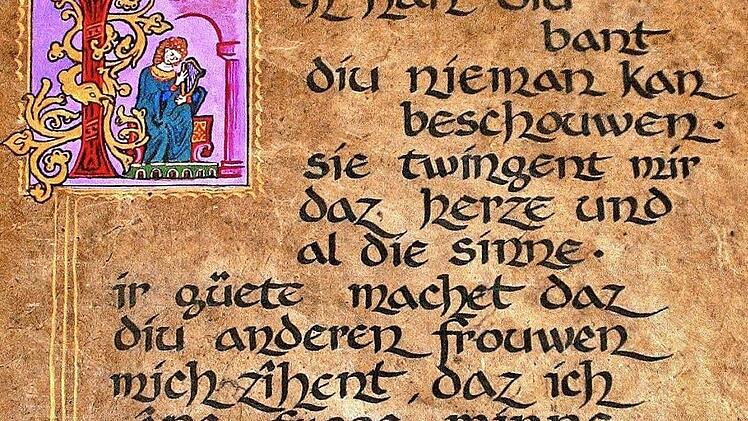 ch han diu
bant
diu nieman kan
beschouwen.
sie twingent mir
daz herze und
al die sinne.
ir güete machet daz
diu anderen frouwen
mich zîhent, daz ich
minne